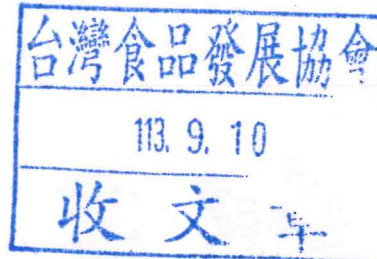 台灣食品發展協會
113. 9. 10
收文